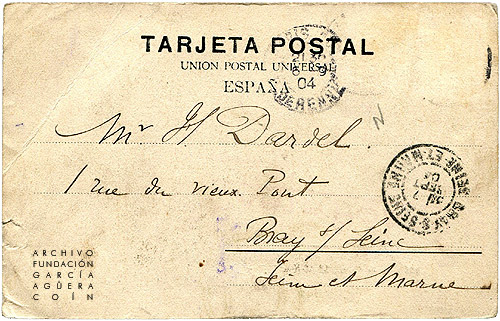 TARJETA POSTAL
UNION POSTAL UNIVERSAL
ESPAÑA
04
Mr H. Dardel.
1 rue du vieux Pont
Bray s/ Seine
Seine et Marne
BRAY S. SEINE SEINE-ET-MARNE
7
SEPT
04
ARCHIVO
FUNDACIÓN
GARCÍA
AGÜERA
COÍN